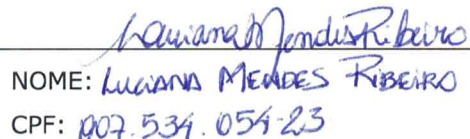 Luciana Mendes Ribeiro
NOME: LUCIANA MENDES RIBEIRO
CPF: 007.534.054-23